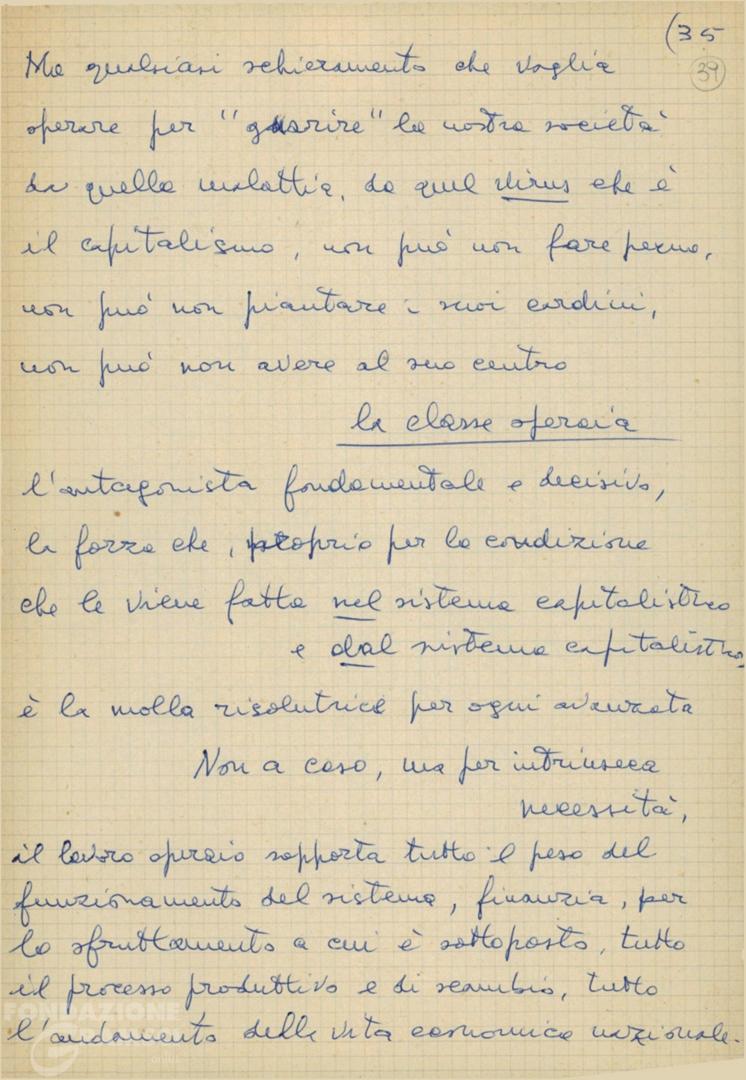 (35
39
Ma qualsiasi schieramento che voglia
operare per "guarire" la nostra società
da quella malattia, da quel virus che è
il capitalismo, non può non fare perno,
non può non piantare i suoi cardini,
non può non avere al suo centro
la classe operaia
l'antagonista fondamentale e decisivo,
la forza che, proprio per la condizione
che le viene fatta nel sistema capitalistico
e dal sistema capitalistico,
è la molla risolutrice per ogni avanzata
Non a caso, ma per intrinseca
necessità,
il lavoro operaio sopporta tutto il peso del
funzionamento del sistema, finanzia, per
lo sfruttamento a cui è sottoposto, tutto
il processo produttivo e di scambio, tutto
l'andamento della vita economica nazionale.
FONDAZIONE